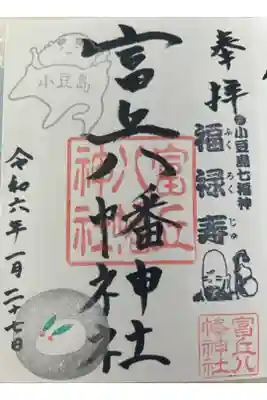 奉拝
小豆島七福神
福禄寿
ふくろくじゅ
富丘八幡神社
富丘八幡神社
小豆島
令和六年一月二十七日
富丘八幡神社